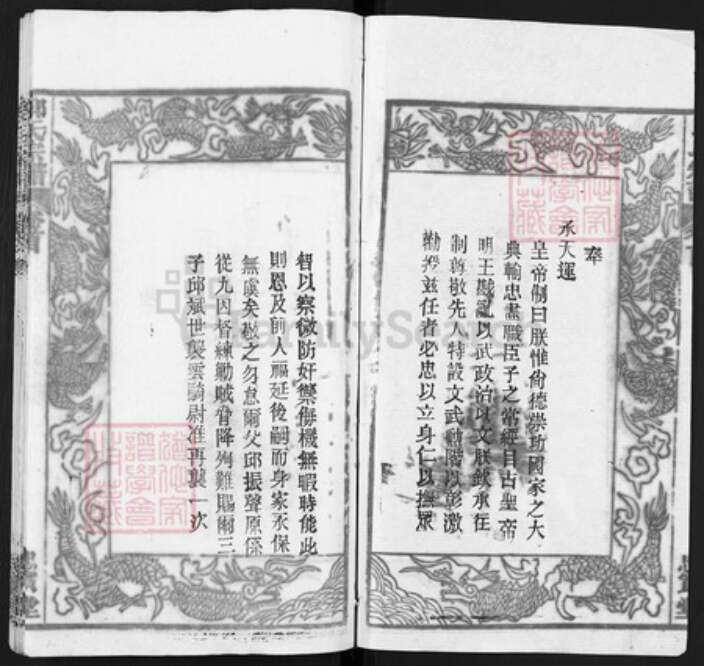 奉
承天運
皇帝制曰朕惟尚德崇功國家之大
典輸忠盡職臣子之常經自古聖帝
明王戡亂以武政治以文朕欽承往
制尊敬先人特設文武勳階以彰激
勸授茲任者必忠以立身仁以撫眾
智以察微防奸禦侮機無暇時能此
則恩及前人福延後嗣而身家永保
無虞矣敬之勿怠爾父邱振聲原係
從九因督練勦賊脅降殉難賜爾三
子邱斌世襲雲騎尉准再襲一次
FamilySearch